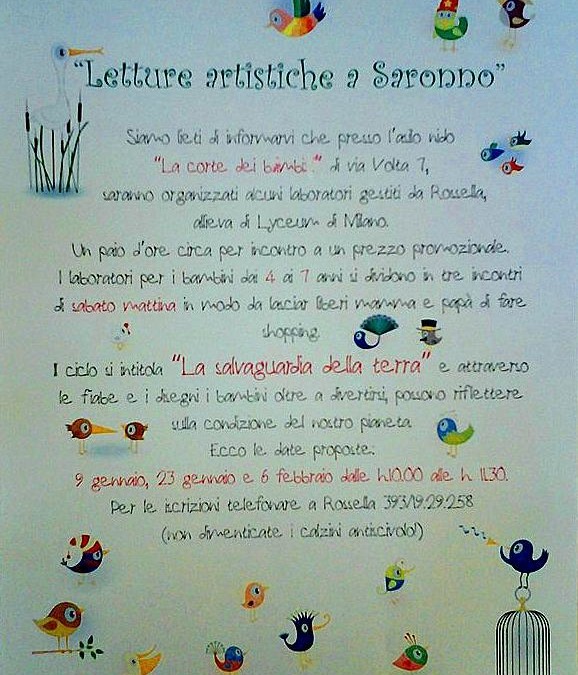 "Letture artistiche a Saronno"
Siamo lieti di informarvi che presso l'asilo nido
"La corte dei bimbi." di via Volta 7,
saranno organizzati alcuni laboratori gestiti da Rossella,
allieva di Lyceum di Milano.
Un paio d'ore circa per incontro a un prezzo promozionale.
I laboratori per i bambini dai 4 ai 7 anni si dividono in tre incontri
di sabato mattina in modo da lasciar liberi mamma e papà di fare
shopping.
I ciclo si intitola "La salvaguardia della terra" e attraverso
le fiabe e i disegni i bambini oltre a divertirsi, possono riflettere
sulla condizione del nostro pianeta.
Ecco le date proposte:
9 gennaio, 23 gennaio e 6 febbraio dalle h.10.00 alle h 11.30.
Per le iscrizioni telefonare a Rossella 393/19.29.258
(non dimenticate i calzini antiscivolo!)